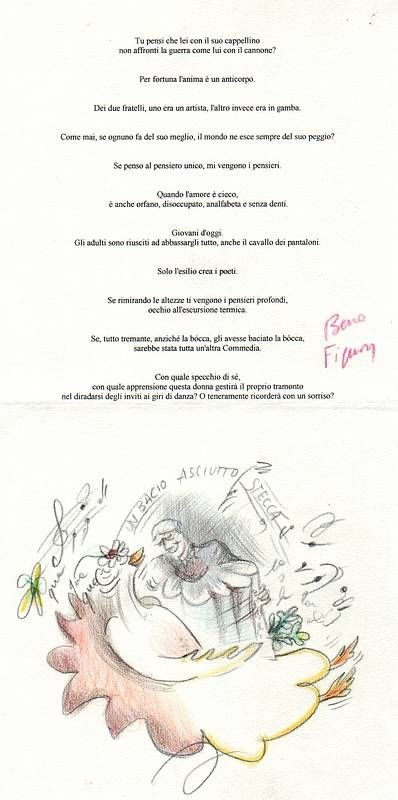 Tu pensi che lei con il suo cappellino
non affronti la guerra come lui con il cannone?
Per fortuna l'anima è un anticorpo.
Dei due fratelli, uno era un artista, l'altro invece era in gamba.
Come mai, se ognuno fa del suo meglio, il mondo ne esce sempre del suo peggio?
Se penso al pensiero unico, mi vengono i pensieri.
Quando l'amore è cieco,
è anche orfano, disoccupato, analfabeta e senza denti.
Giovani d'oggi.
Gli adulti sono riusciti ad abbassargli tutto, anche il cavallo dei pantaloni.
Solo l'esilio crea i poeti.
Se rimirando le altezze ti vengono i pensieri profondi,
occhio all'escursione termica.
Se, tutto tremante, anziché la bócca, gli avesse baciato la bòcca,
sarebbe stata tutta un'altra Commedia.
Beno
Con quale specchio di sé,
con quale apprensione questa donna gestirà il proprio tramonto
nel diradarsi degli inviti ai giri di danza? O teneramente ricorderà con un sorriso?
UN BACIO ASCIUTTO
STECCA
qua
qua
qua